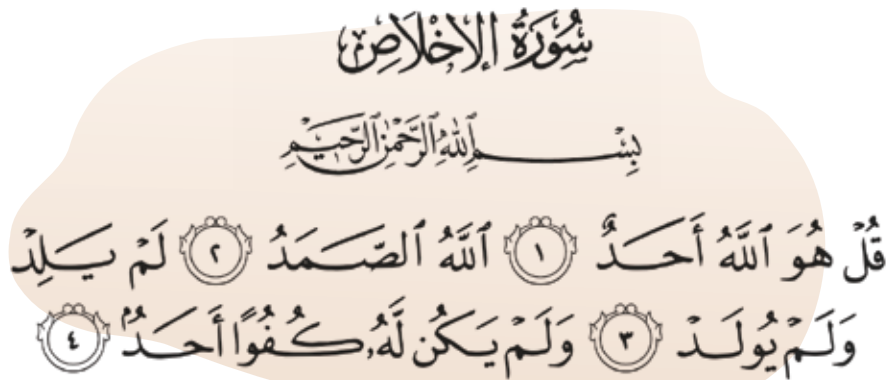 سُورَةُ ٱلْإِخْلَاصِ
بِسْمِ ٱللَّهِ ٱلرَّحْمَٰنِ ٱلرَّحِيمِ
قُلْ هُوَ ٱللَّهُ أَحَدٌ ١ ٱللَّهُ ٱلصَّمَدُ ٢ لَمْ يَلِدْ
وَلَمْ يُولَدْ ٣ وَلَمْ يَكُن لَّهُۥ كُفُوًا أَحَدٌۢ ٤